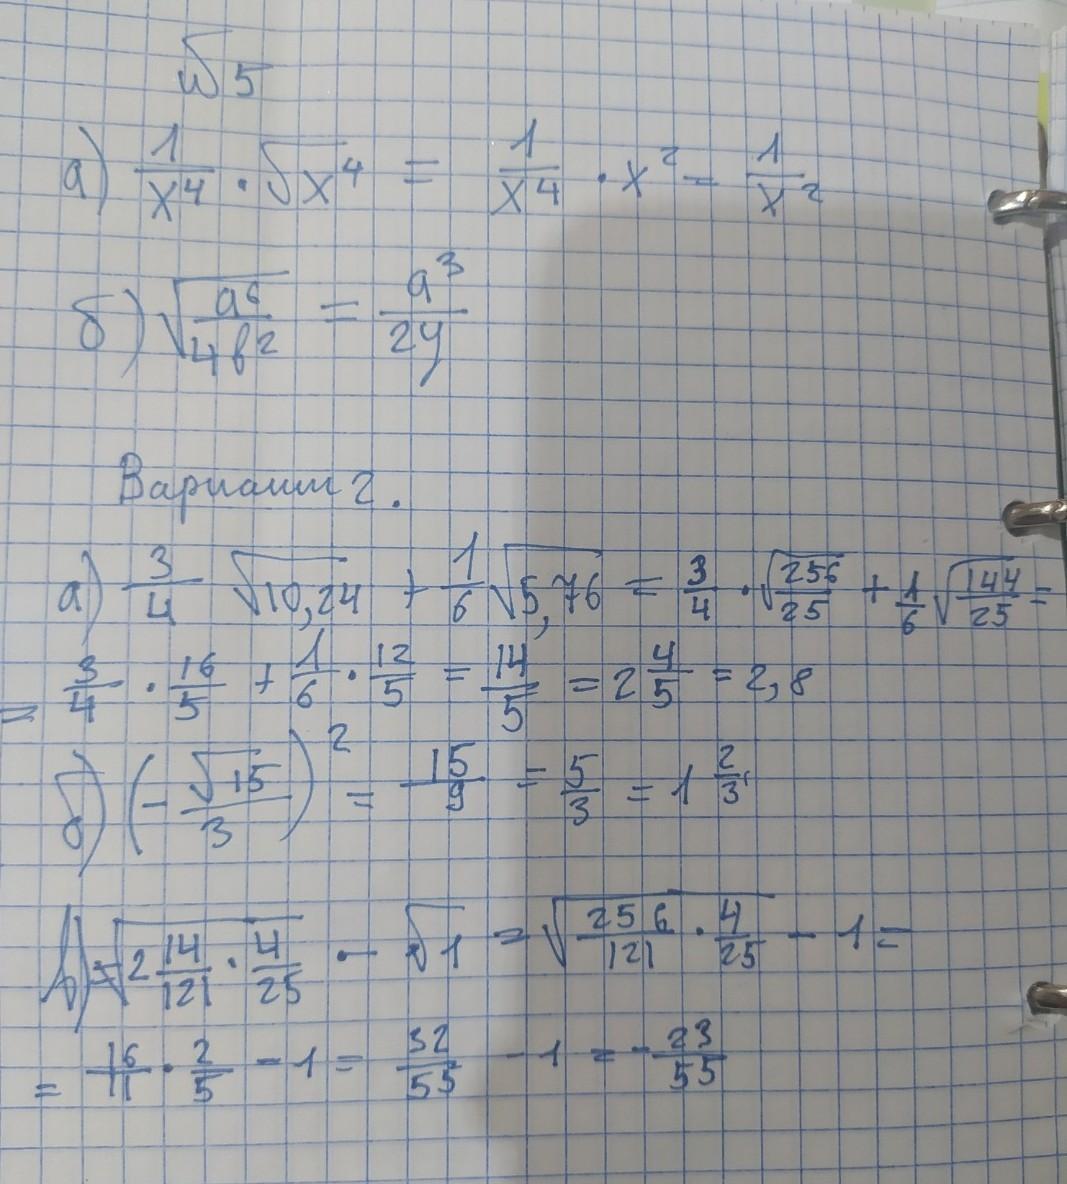 №5
а) 1/x⁴ · √x⁴ = 1/x⁴ · x² = 1/x²
б) √(a⁶/4b²) = a³/2y
Вариант 2.
а) 3/4 √10,24 + 1/6 √5,76 = 3/4 · √(256/25) + 1/6 √(144/25) =
= 3/4 · 16/5 + 1/6 · 12/5 = 14/5 = 2 4/5 = 2,8
б) (-√15/3)² = 15/9 = 5/3 = 1 2/3
в) √(2 14/121 · 4/25) - √1 = √(256/121 · 4/25) - 1 =
= 16/11 · 2/5 - 1 = 32/55 - 1 = -23/55